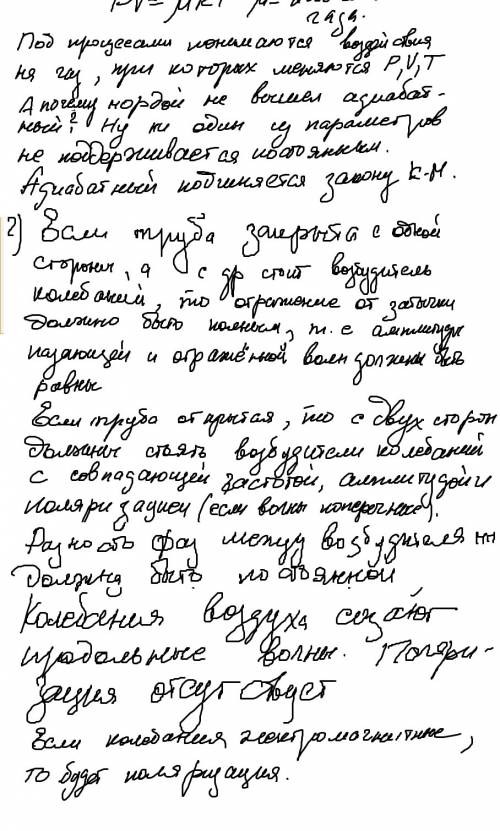 PV = μRT μ =
газа.
Под процессами понимаются воздействия
на газ, при которых меняются P, V, T
А почему не вышел адиабат-
ный? Ну ни один из параметров
не поддерживается постоянным.
Адиабатный подчиняется закону К-М.
2) Если труба закрыта с одной
стороны, а с др стоит возбудитель
колебаний, то отражение от затычки
должно быть полным, т. е амплитуды
падающей и отражённой волн должны быть
равны
Если труба открытая, то с двух сторон
должны стоять возбудители колебаний
с совпадающей частотой, амплитудой и
поляризацией (если волны поперечные).
Разность фаз между возбудителями
должна быть постоянной
Колебания воздуха создают
продольные волны. Поляри-
зация отсутствует
Если колебания электромагнитные,
то будет поляризация.